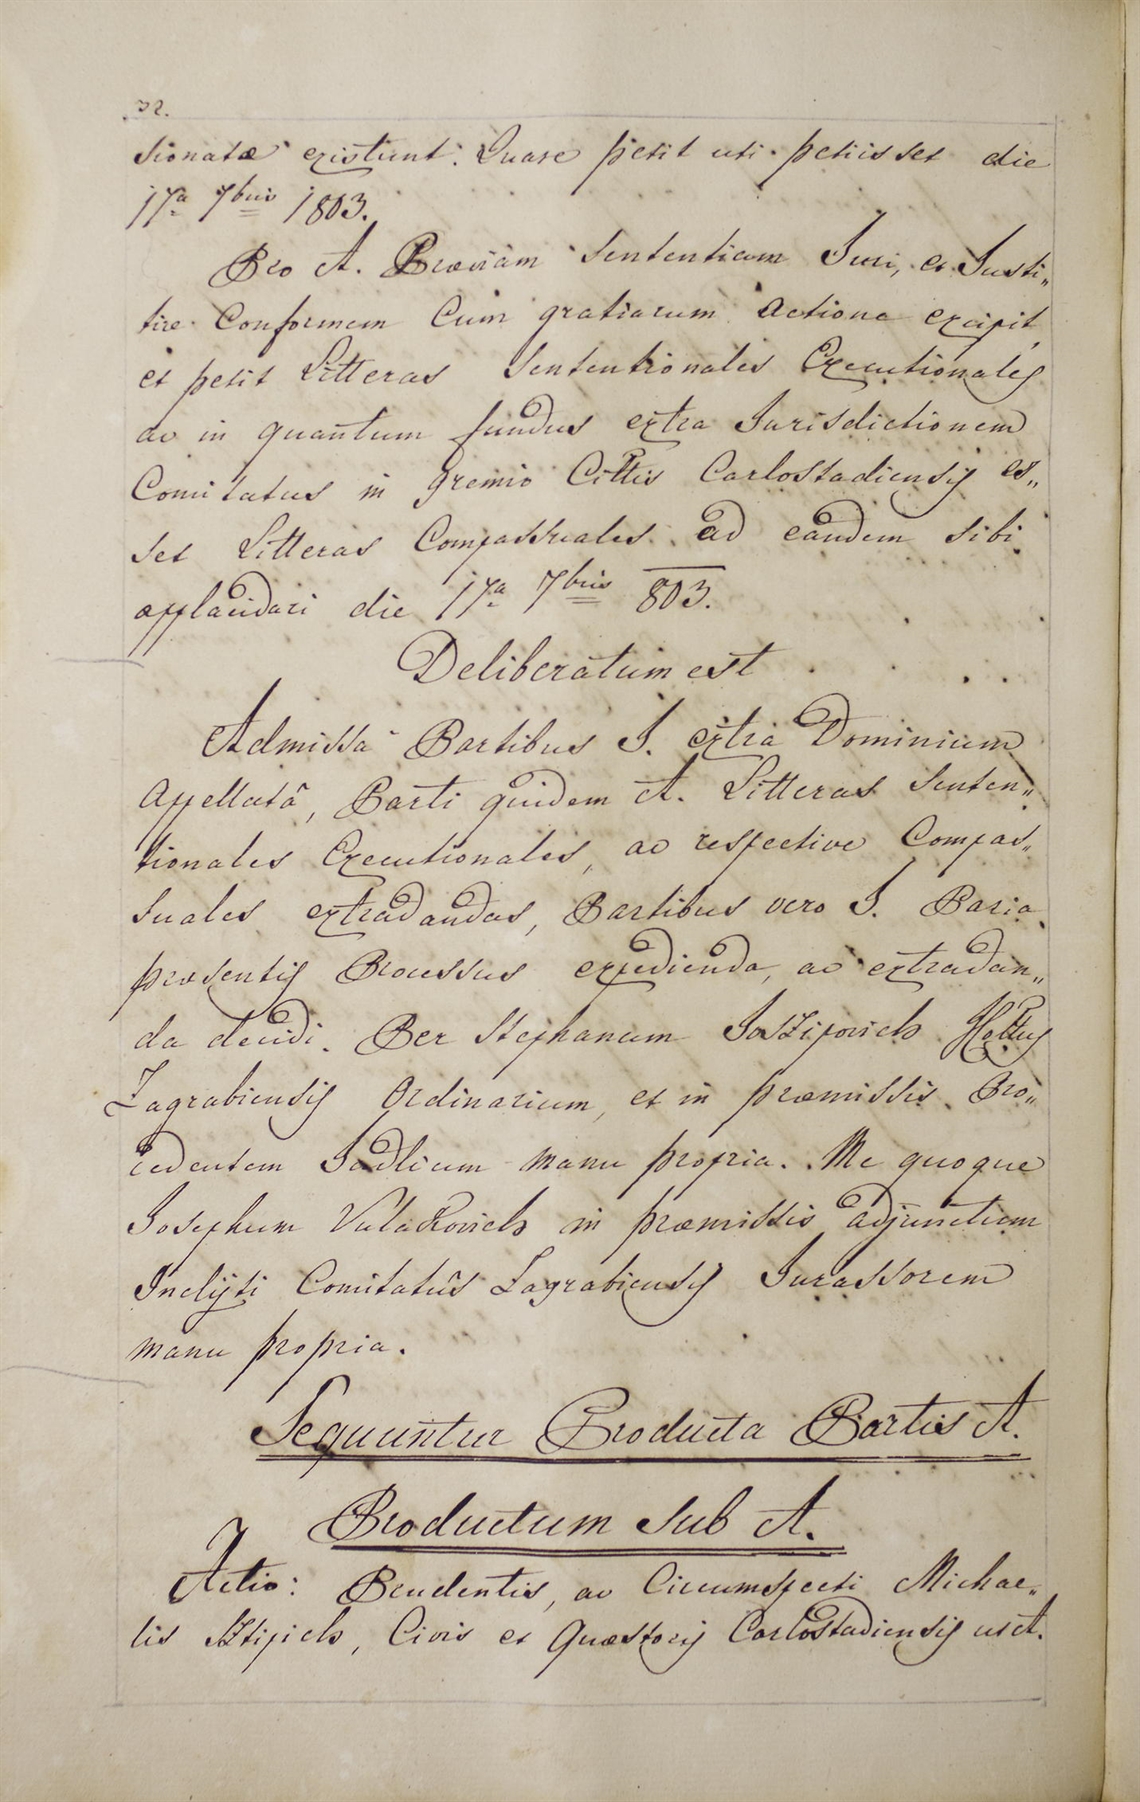 32.
sionatæ existunt. Quare petit uti petiisset die
17a 7bris 1803.
Pro A. Præviam Sententiam Juri, et Justi„
tiæ Conformem Cum gratiarum actione excipit,
et petit Litteras Sententionales Executionales
ac in quantum fundus extra Jurisdictionem
Comitatus in gremio Cittis Carlostadiensis es„
set Litteras Compassuales ad eandem sibi
applacidari die 17a 7bris 803.
Deliberatum est
Admissâ Partibus I. extra Dominium
Appellatâ, Parti quidem A. Litteras Senten„
tionales Executionales, ac respective Compas„
suales extradandas, Partibus vero I. Paria
præsentis Processus expedienda, ac extradan„
da decidi. Per Stephanum Joszipovich
Zagrabiensis Ordinarium, et in præmissis Pro„
cedentem Judlium manu propria. Me quoque
Josephum Vulakovich in præmissis adjunctum
Inclyti Comitatûs Zagrabiensis Jurassorem
manu propria.
Sequuntur Producta Partis A.
Productum sub A.
Actio: Prudentis, ac Circumspecti Michae„
lis Sztipich, Civis et Quæstoris Carlostadiensis ut A.